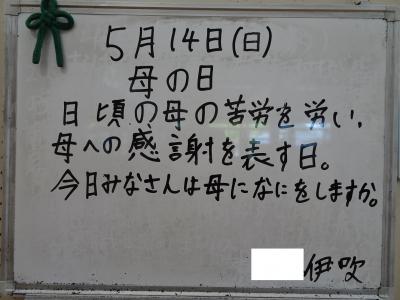 5月14日(日)
母の日
日頃の母の苦労を労い、
母への感謝を表す日。
今日みなさんは母になにをしますか。
伊吹